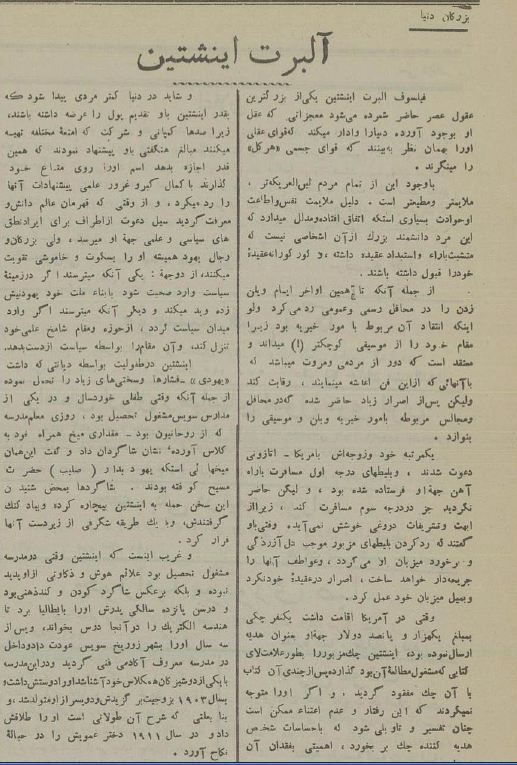 بزرگان دنیا
آلبرت اینشتین
فیلسوف البرت اینشتین یکی از بزرگترین
عقول عصر حاضر شمرده می‌شود معجزاتی که عقل
او بوجود آورده دنیارا وادار میکند که‌قوای‌عقلی
اورا بهمان نظر به‌بینند که قوای جسمی «هرکل»
را مینگرند .
باوجود این از تمام مردم لین‌العریکه‌تر ،
ملایمتر ومطیعتر است . دلیل ملایمت نفس‌واطاعت
اوحوادث بسیاری استکه اتفاق افتاده‌ومدلل میدارد که
این مرد دانشمند بزرك ازآن اشخاصی نیست که
متشبث‌باراء واستبداد عقیده داشته ، و کور کورانه‌عقیدهٔ
خودرا قبول داشته باشند .
از جمله آنکه تا همین اواخر ایام ویلن
زدن را در محافل رسمی وعمومی رد می‌کرد ولو
اینکه انتقاد آن مربوط با مور خیریه بود زیرا
مقام خود را از موسیقی کوچکتر (!) میداند و
معتقد است که دور از مردمی ومروت میباشد که
باآنهائی که ازاین فن اعاشه مینمایند ، رقابت کند
ولیکن پس‌از اصرار زیاد حاضر شده که‌در محافل
ومجالس مربوطه بامور خیریه ویلن و موسیقی را
بنوازد .
یکمرتبه خود وزوجه‌اش بامریکا - اتازونی
دعوت شدند ، وبلیطهای درجه اول مسافرت باراه
آهن جهة‌او فرستاده شده بود ، و لیکن حاضر
نگردید جز دردرجه سوم مسافرت کند ، زیرا از
ابهت وتشریفات دروغی خوشش نمی‌آید. وقتی‌باو
گفتند که ردکردن بلیطهای مزبور موجب دل‌آزردگی
و برخورد میزبان الا می‌گردد ، وعواطف آنها را
جریحه‌دار خواهد ساخت ، اصرار درعقیدهٔ خودنکرد
وبمیل میزبان خود عمل کرد .
وقتی در آمریکا اقامت داشت یکنفر چکی
بمبلغ یکهزار و پانصد دولار جهة‌او بعنوان هدیه
ارسال‌نموده بود، اینشتین چك‌مزبوررا بطورعلامت‌لای
کتابی که‌مشغول‌مطالعهٔ آن‌بود گذارده‌پس‌ازچندی آن کتاب
با آن چك مفقود گردید . و اگر اورا متوجه
نمیکردند که این رفتار و عدم اعتناء ممکن است
چنان تفسیر و تاویلی شود که باحساسات شخص
هدیه کننده چك بر بخورد ، اهمیتی بفقدان آن
و شاید در دنیا کمتر مردی پیدا شود که
بقدر اینشتین باو تقدیم پول را عرضه داشته باشند،
زیرا صدها کمپانی و شرکت که امتعهٔ مختلفه تهیه
میکنند مبالغ هنگفتی باو پیشنهاد نمودند که همین
قدر اجازه بدهد اسم اورا روی متاع خود
گذارند باکمال کبروغرور علمی پیشنهادات آنها
را رد میکرد ، و از وقتی که قهرمان عالم دانش‌و
معرفت گردید سیل دعوت ازاطراف برای ایرادنطق
های سیاسی و علمی جهة او میرسد ، ولی بزرگان‌و
رجال یهود همیشه او را بسکوت و خاموشی تقویت
میکنند، از دوجهة : یکی آنکه میترسند اگر درزمینهٔ
سیاست وارد صحبت شود بابناء ملت خود یهودنیش
زده وبد میکند و دیگر آنکه میترسند اگر وارد
میدان سیاست گردد ، ازحوزه ومقام شامخ علمی‌خود
تنزل کند، وآن مقام‌را بواسطه سیاست ازدست‌بدهد.
اینشتین درطفولیت بواسطه دیانتی که داشت
«یهودی» ـ فشارها وسختی‌های زیاد را تحمل نموده
از جمله آنکه وقتی طفلی خوردسال و در یکی از
مدارس سویس‌مشغول تحصیل بود ، روزی معلم‌مدرسه
که از روحانیون بود - مقداری میخ همراه خود به
کلاس آورده، نشان شاگردان داد و گفت این‌همان
میخها ئی استکه یهود بدار ( صلیب ) حضرت
مسیح کوفته بودند . شاگردها بمحض شنیدن
این سخن حمله به اینشتین بیچاره کرده وبباد کتك
گرفتندش، و با یك طریقه شگرفی از زیردست آنها
فرار کرد .
و غریب اینست که اینشتین وقتی درمدرسه
مشغول تحصیل بود علائم هوش و ذکاوتی ازاوپدید
نبوده و بلکه برعکس شاگرد کودن و کندذهنی‌بود
و درسن پانزده سالگی پدرش اورا بایطالیا برد تا
هندسه الکتریك را درآنجا درس بخواند، وپس‌از
سه سال اورا بشهر زوریخ سویس عودت دادوداخل
در مدرسه معروف آکادمی فنی گردید ودراین‌مدرسه
بایکی‌ازدوشیزگان‌همکلاس‌خودآشناشد‌اورادوستش‌داشت‌و
بسال ۱۹۰۳ بزوجیت‌بر گزیدش‌ودوپسرازاومتولدشد،و
بنا بعلتی که شرح آن طولانی است اورا طلاقش
داد و در سال ۱۹۱۱ دختر عمویش را در حبالهٔ
نکاح آورد .